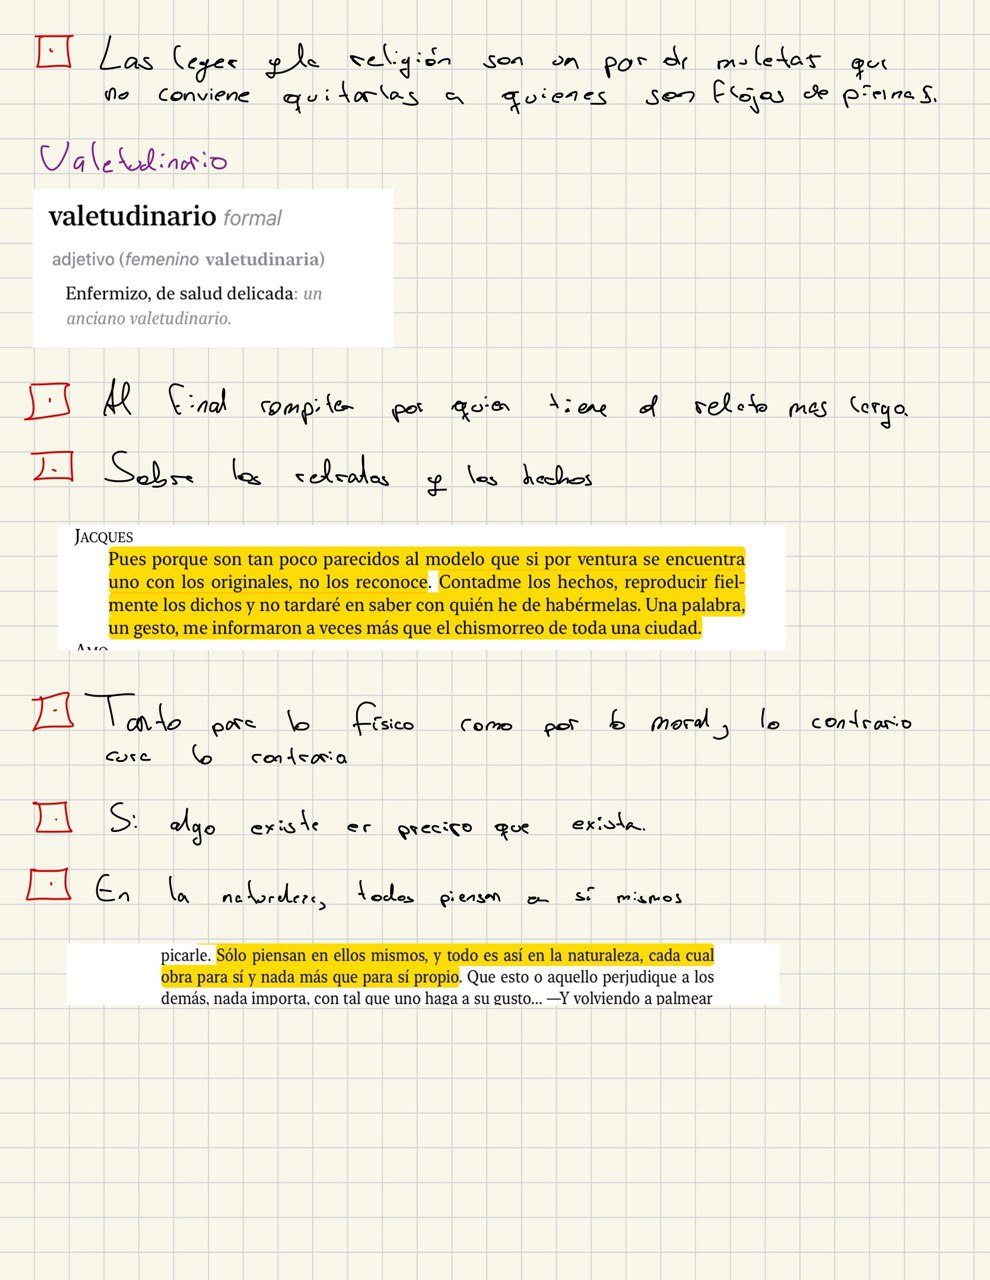 Las leyes y la religión son un par de muletas que
no conviene quitarlas a quienes son flojas de piernas.
Valetudinario
valetudinario formal
adjetivo (femenino valetudinaria)
Enfermizo, de salud delicada: un
anciano valetudinario.
Al final compiten por quien tiene el relato mas largo
Sobre los retratos y los hechos
JACQUES
Pues porque son tan poco parecidos al modelo que si por ventura se encuentra
uno con los originales, no los reconoce. Contadme los hechos, reproducir fiel-
mente los dichos y no tardaré en saber con quién he de habérmelas. Una palabra,
un gesto, me informaron a veces más que el chismorreo de toda una ciudad.
AMO
Tanto para lo físico como por lo moral, lo contrario
cura lo contrario
Si algo existe es preciso que exista.
En la naturaleza, todos piensan en sí mismos
picarle. Sólo piensan en ellos mismos, y todo es así en la naturaleza, cada cual
obra para sí y nada más que para sí propio. Que esto o aquello perjudique a los
demás, nada importa, con tal que uno haga a su gusto... —Y volviendo a palmear